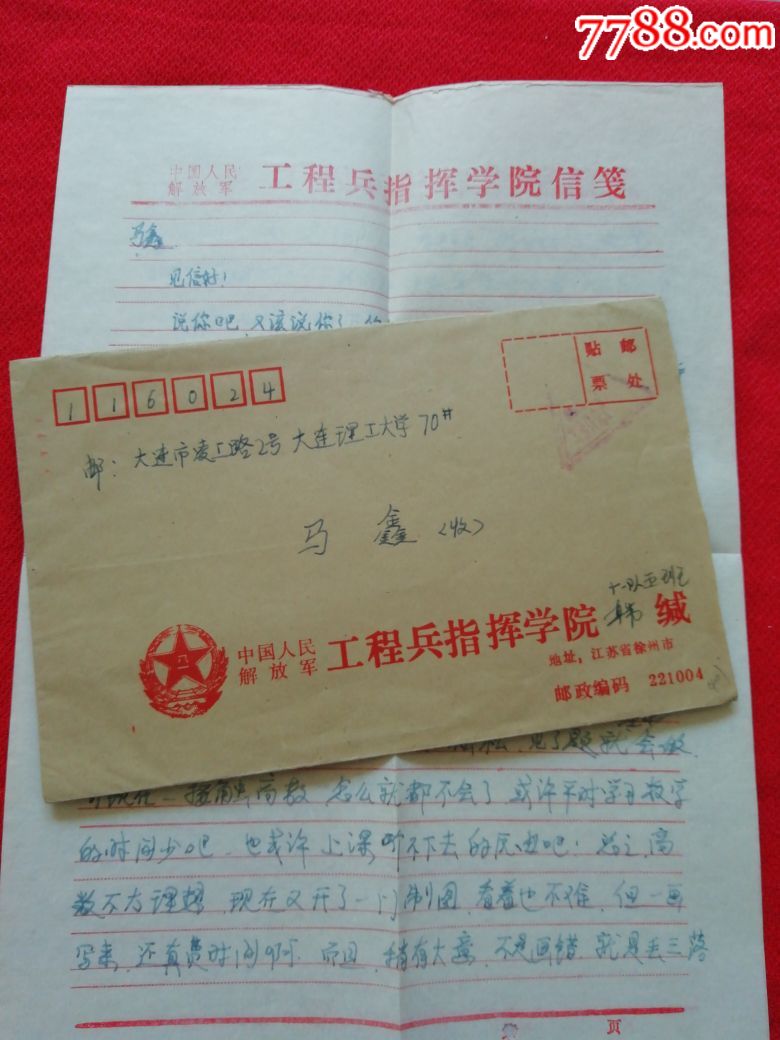 7788.com
中国人民
解放军
工程兵指挥学院信笺
马鑫
见信好！
说你吧,又该说你了
116024
贴邮
票处
邮：大连市凌工路2号 大连理工大学70#
马鑫（收）
十一队五班
中国人民
解放军
工程兵指挥学院
韩 缄
地址：江苏省徐州市
邮政编码 221004
见了题就会做
接触高数,怎么就都不会了,或许平时学习数学
的时间少吧,也或许上课听不下去的原因吧！总之,高
数不太理想,现在又开了一门制图,看着也不难,但一画
写来,还真费时间啊.而且,稍有大意,不是画错,就是丢三落
页